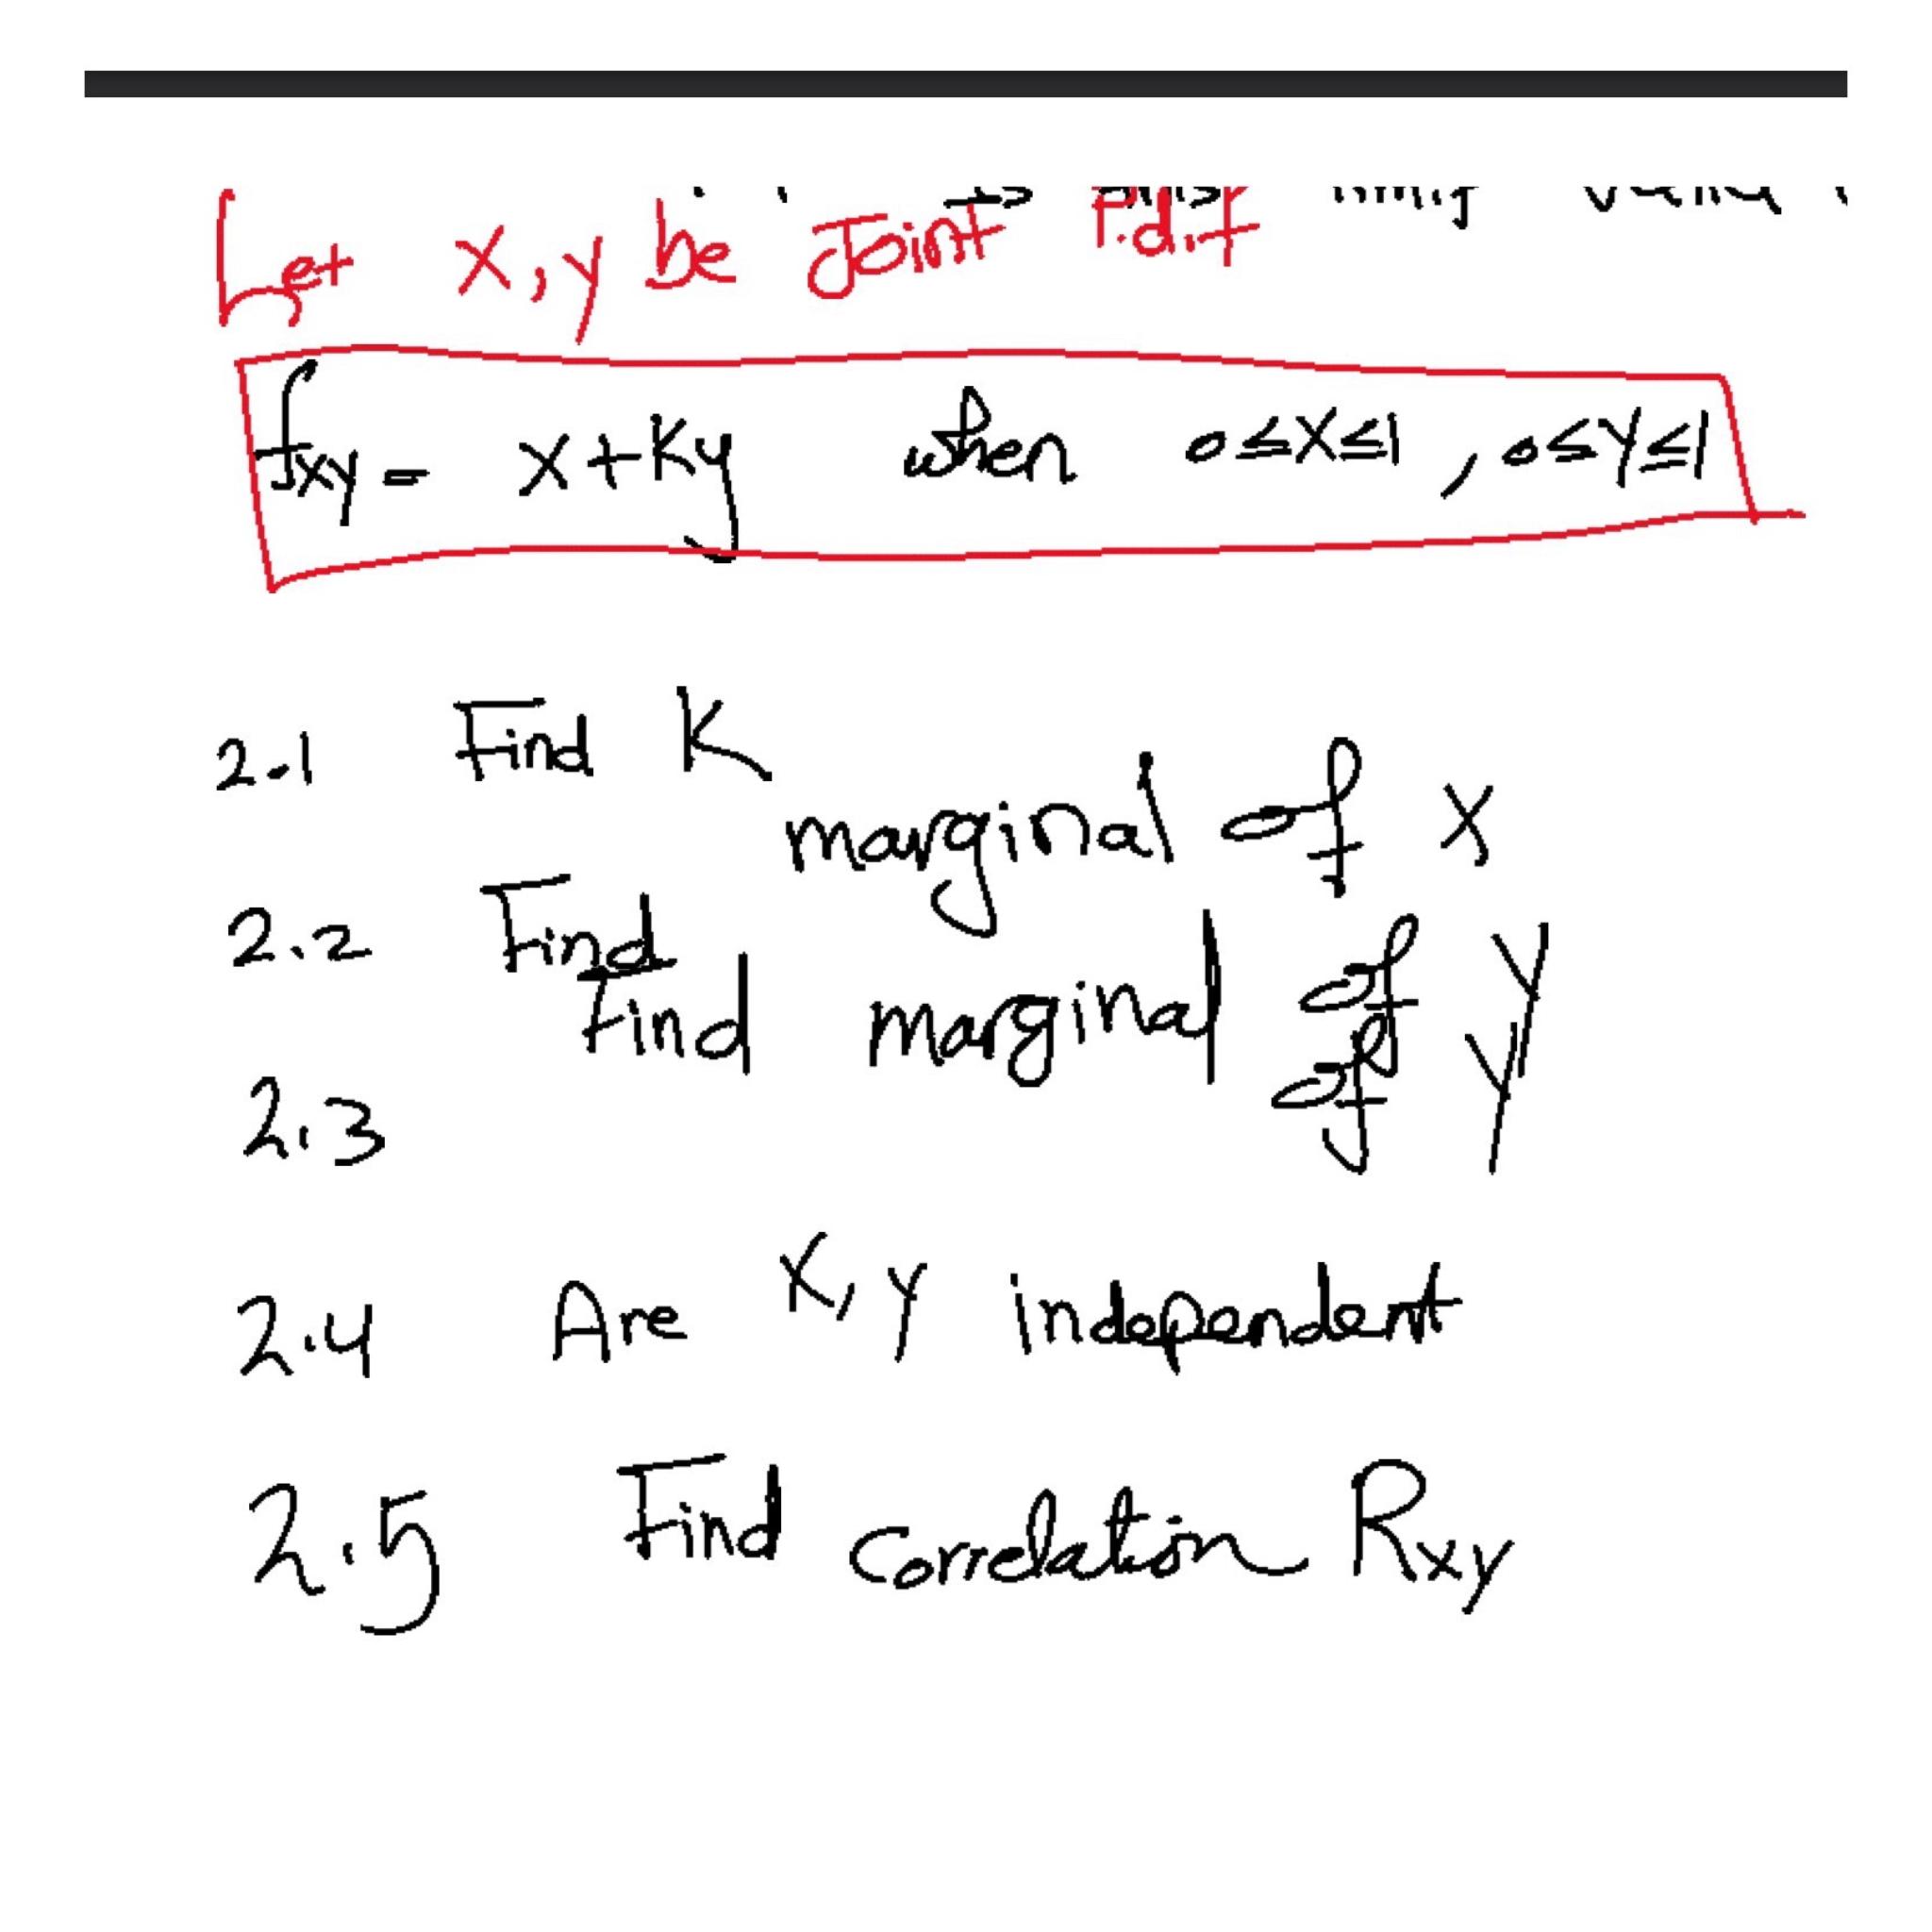 Let X, y be Joint P.d.f
fxy = x + Ky when 0≤X≤1, 0≤Y≤1
2.1 Find K
2.2 Find marginal of X
2.3 Find marginal of Y
of Y
2.4 Are X, y independent
2.5 Find Correlation Rxy